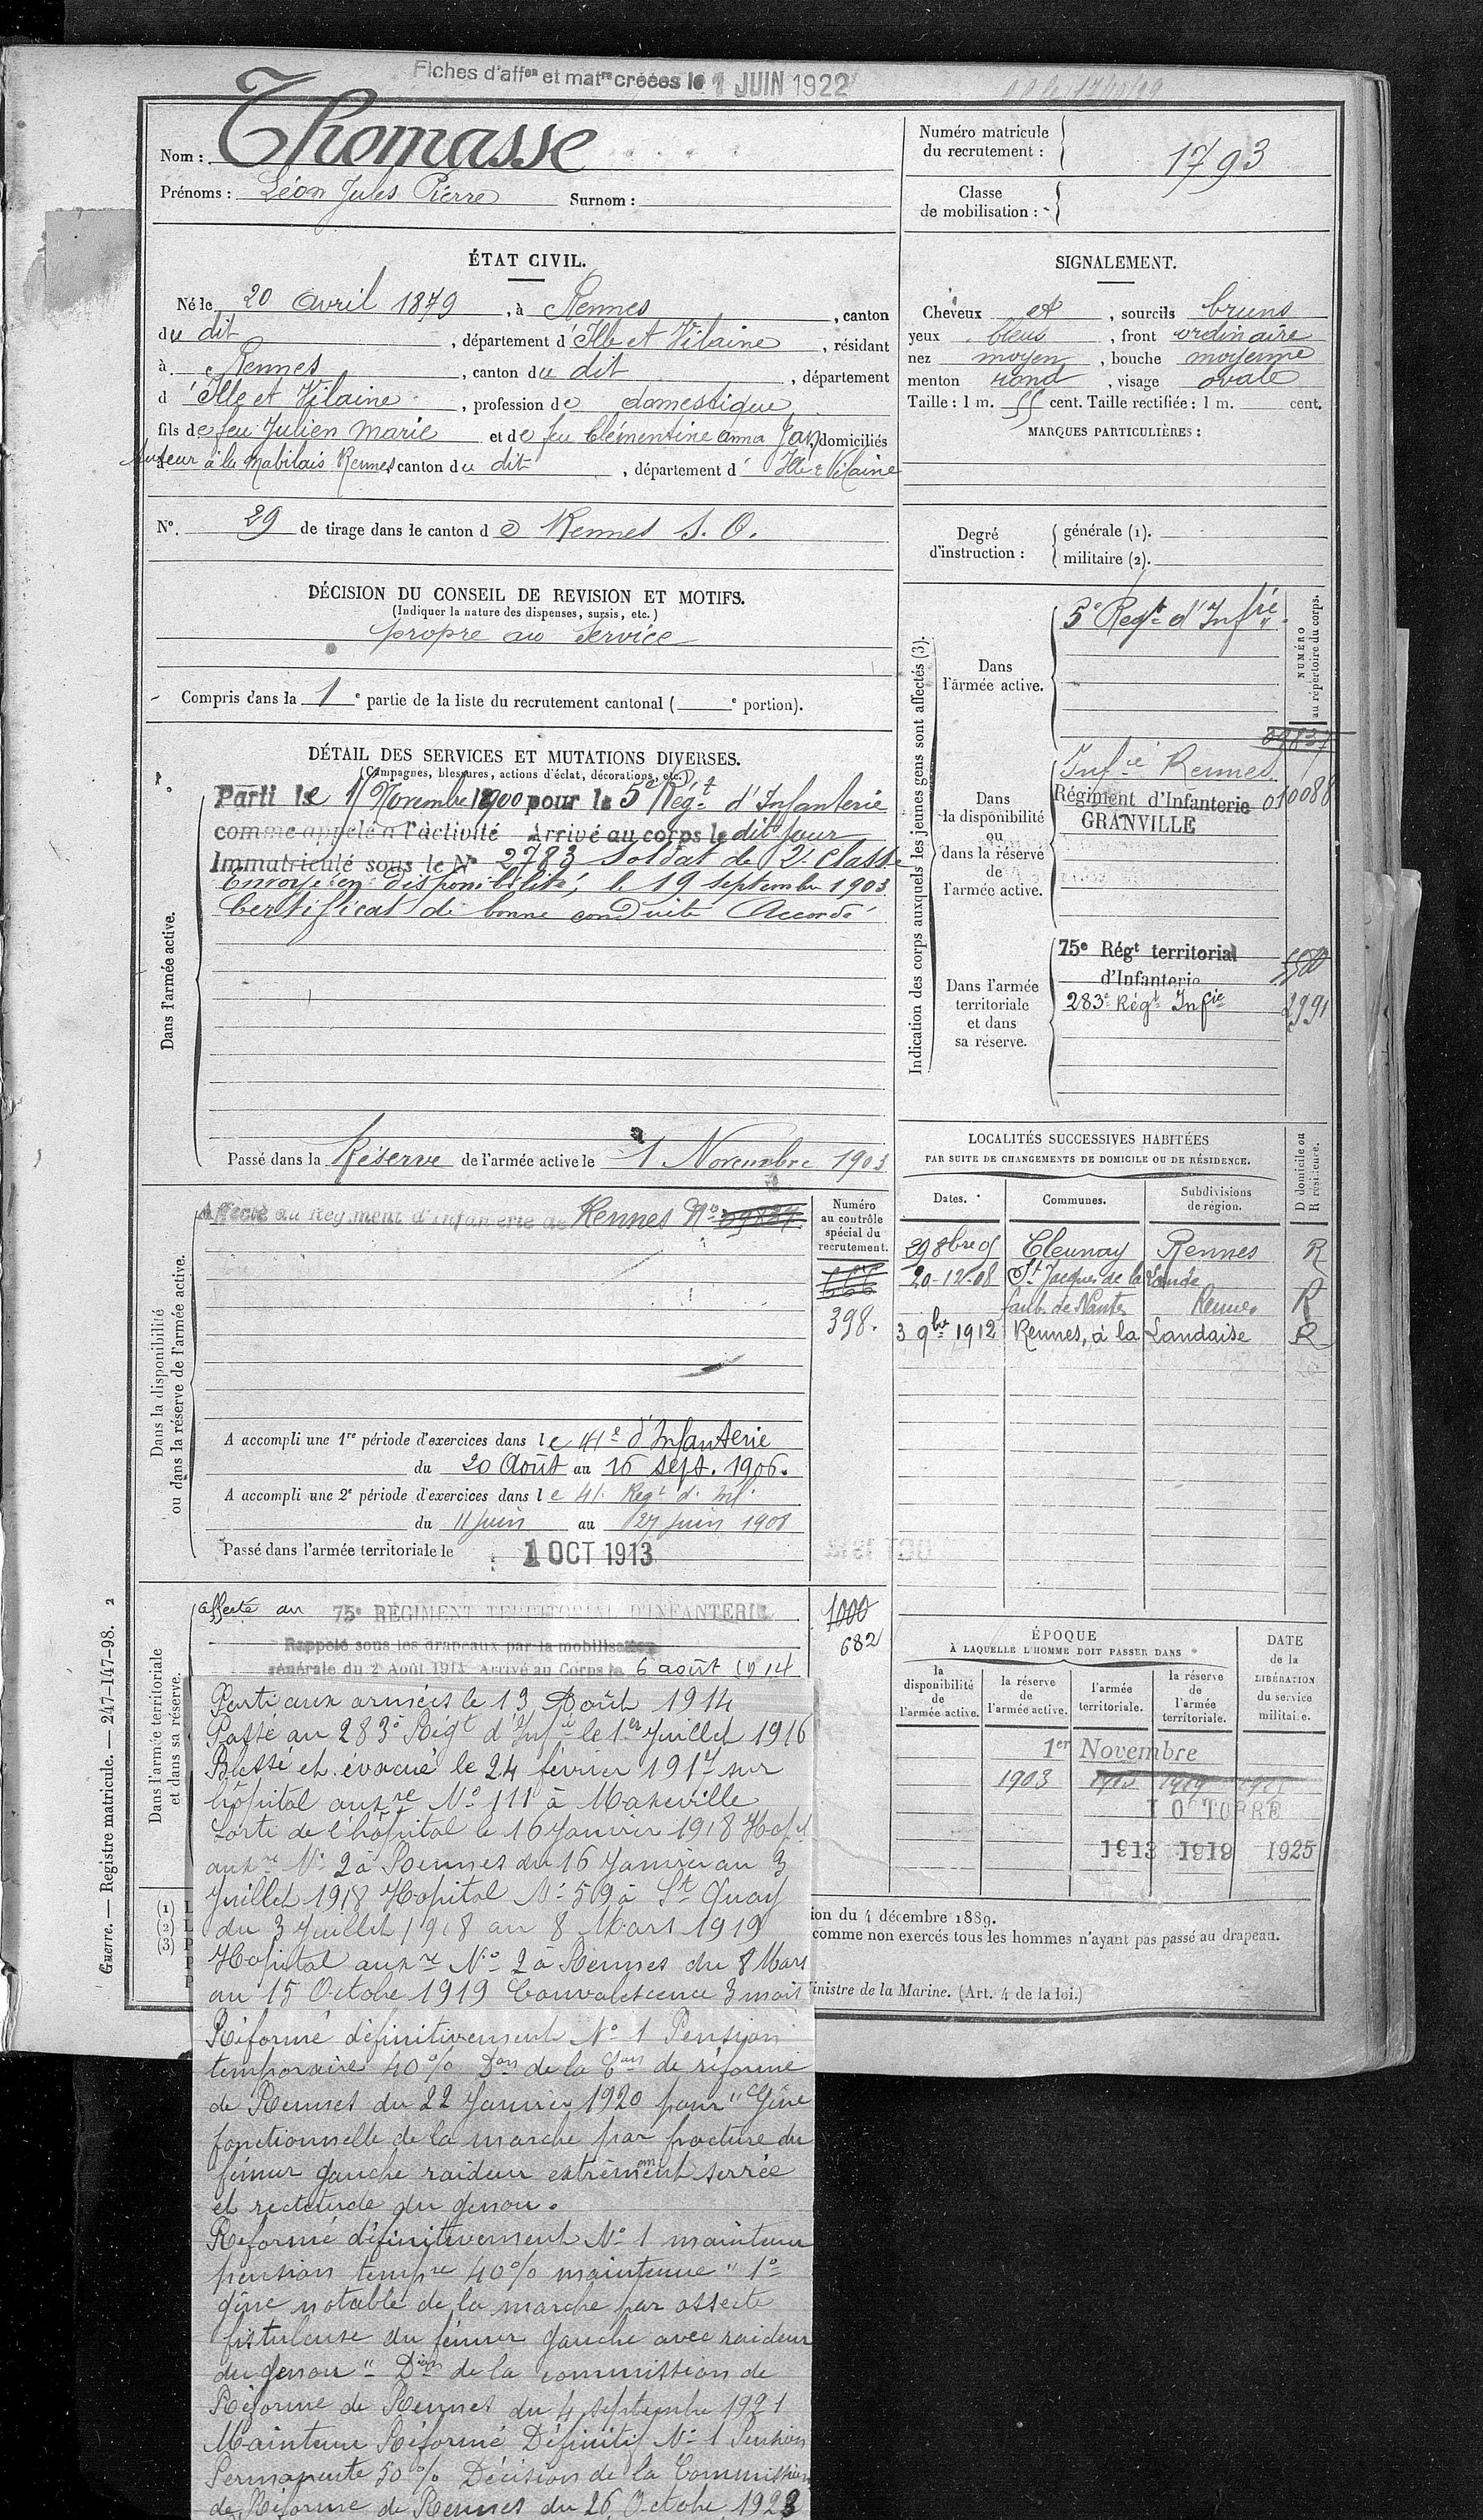 Fiches d'affon et matre créées le 1 JUIN 1922
Nom : Thomasse
Prénoms : Léon Jules Pierre Surnom :
Numéro matricule du recrutement : 1793
Classe de mobilisation :
ÉTAT CIVIL.
Né le 20 Avril 1879, à Rennes, canton
du dit, département d'Ille et Vilaine, résidant
à Rennes, canton du dit, département
d'Ille et Vilaine, profession de domestique
fils de feu Julien Marie et de feu Clémentine Anna Jan, domiciliés
à la Mabilais Rennes canton du dit, département d'Ille & Vilaine
N° 29 de tirage dans le canton de Rennes S. O.
DÉCISION DU CONSEIL DE REVISION ET MOTIFS.
(Indiquer la nature des dispenses, sursis, etc.)
propre au service
Compris dans la 1e partie de la liste du recrutement cantonal ( e portion).
SIGNALEMENT.
Cheveux et, sourcils bruns
yeux bleus, front ordinaire
nez moyen, bouche moyenne
menton rond, visage ovale
Taille : 1 m. 55 cent. Taille rectifiée : 1 m. cent.
MARQUES PARTICULIÈRES :
Degré d'instruction :
générale (1).
militaire (2).
DÉTAIL DES SERVICES ET MUTATIONS DIVERSES.
(Campagnes, blessures, actions d'éclat, décorations, etc.)
Dans l'armée active.
Parti le 1 Novembre 1900 pour le 5e Régt d'Infanterie
comme appelé à l'activité Arrivé au corps le dit jour
Immatriculé sous le N° 2783 Soldat de 2e Classe
Envoyé en disponibilité, le 19 septembre 1903
Certificat de bonne conduite Accordé
Passé dans la Réserve de l'armée active le 1 Novembre 1903
Indication des corps auxquels les jeunes gens sont affectés (3).
NUMÉRO au répertoire du corps.
Dans l'armée active.
5e Regt d'Infrie
Dans la disponibilité ou dans la réserve de l'armée active.
09837
Infie Rennes
Régiment d'Infanterie 010088
GRANVILLE
Dans l'armée territoriale et dans sa réserve.
75e Régt territorial
d'Infanterie
283e Régt Infie 2991
LOCALITÉS SUCCESSIVES HABITÉES
PAR SUITE DE CHANGEMENTS DE DOMICILE OU DE RÉSIDENCE.
D domicile ou R résidence.
Dates. Communes. Subdivisions de région.
29 8bre 05 Cleunay Rennes R
20-12-08 St Jacques de la Lande
faub. de Nantes Rennes R
3 9bre 1912 Rennes, à la Landaise R
Dans la disponibilité ou dans la réserve de l'armée active.
Affecté au Régiment d'Infanterie de Rennes N° 09837
Numéro au contrôle spécial du recrutement.
398.
A accompli une 1re période d'exercices dans le 41e d'Infanterie
du 20 Août au 16 sept. 1906.
A accompli une 2e période d'exercices dans le 41 Regt d'Inf.
du 11 juin au 27 juin 1908
Passé dans l'armée territoriale le 1 OCT 1913
Dans l'armée territoriale et dans sa réserve.
affecté au 75e RÉGIMENT TERRITORIAL D'INFANTERIE
1000
682
Rappelé sous les drapeaux par la mobilisation
générale du 2 Août 1914 Arrivé au Corps le 6 août 1914
Parti aux armées le 13 Août 1914
Passé au 283e Régt d'Infie le 1er Juillet 1916
Blessé et évacué le 24 février 1917 sur
hôpital auxre N° 111 à Maxeville
Sorti de l'hôpital le 16 Janvier 1918 Hopl
auxre N° 2 à Rennes du 16 Janvier au 3
Juillet 1918 Hopital N° 59 à St Quay
du 3 Juillet 1918 au 8 Mars 1919
Hopital auxre N° 2 à Rennes du 8 Mars
au 15 Octobre 1919 Convalescence 3 mois
Réformé définitivement N° 1 Pension
temporaire 40% Don de la Con de réforme
de Rennes du 22 Janvier 1920 pour "Gêne
fonctionnelle de la marche par fracture du
fémur gauche raideur extrêmement serrée
et rectitude du genou.
Réformé définitivement N° 1 maintenu
pension tempre 40% maintenue "1°
gêne notable de la marche par ostéite
fistuleuse du fémur gauche avec raideur
du genou" Dion de la commission de
Réforme de Rennes du 4 septembre 1921
Maintenu Réformé Définitif N° 1 Pension
Permanente 50% Décision de la Commission
de Réforme de Rennes du 26 Octobre 1923
ÉPOQUE
À LAQUELLE L'HOMME DOIT PASSER DANS
la disponibilité de l'armée active. la réserve de l'armée active. l'armée territoriale. la réserve de l'armée territoriale.
DATE de la LIBÉRATION du service militaire.
1er Novembre
1903
OCTOBRE
1913 1919 1925
(1) L
(2) L
(3) P
ion du 4 décembre 1889.
comme non exercés tous les hommes n'ayant pas passé au drapeau.
inistre de la Marine. (Art. 4 de la loi.)
Guerre. — Registre matricule. — 247-147-98. 2